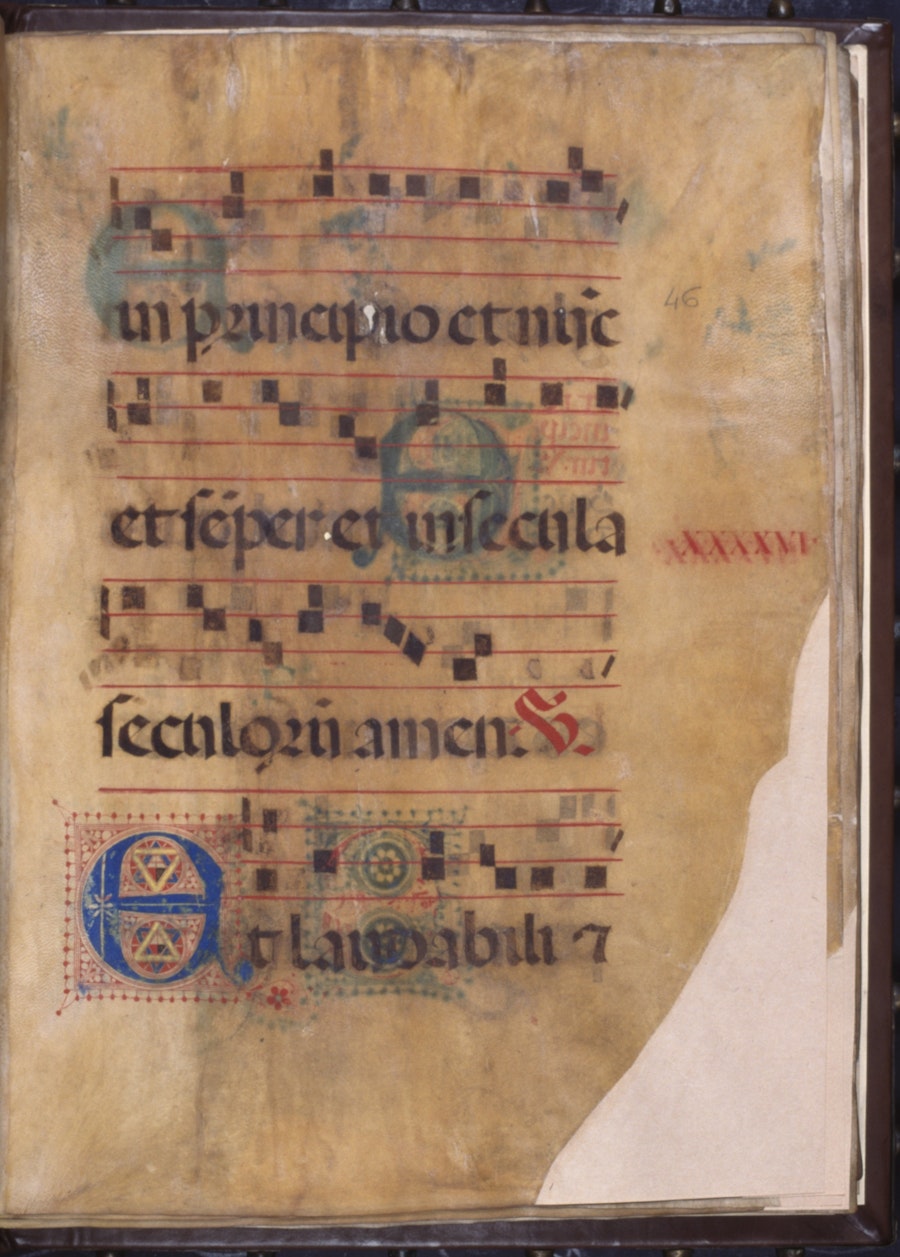 in principio et nũc
46
et sẽper et in secula
seculorũ amen. V.
Et laudabili ⁊